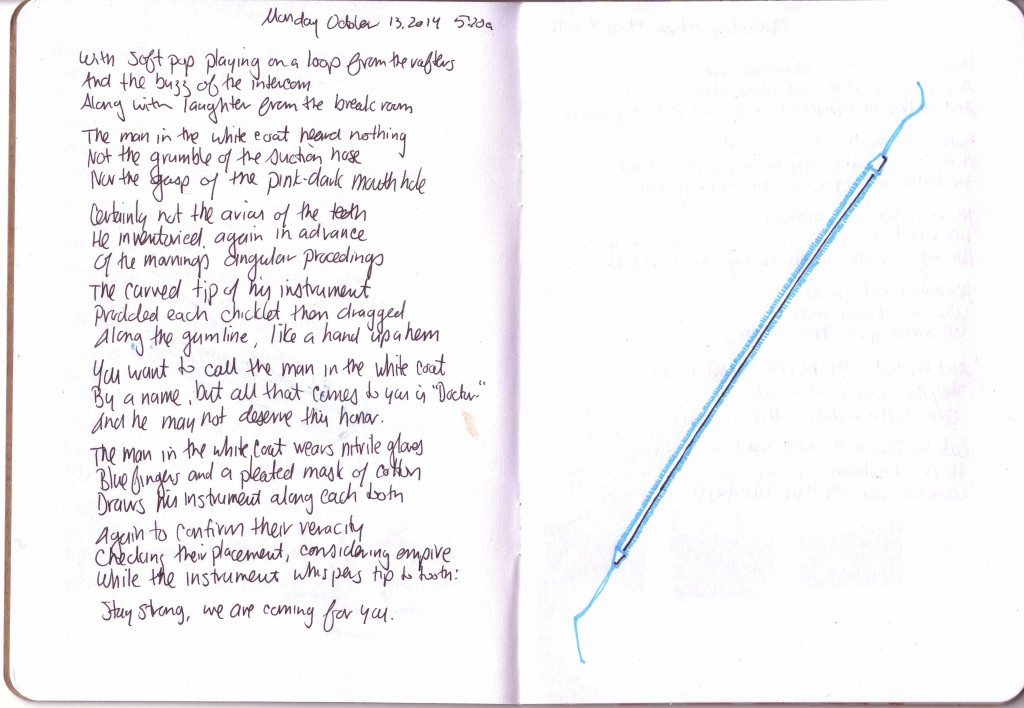 Monday October 13, 2014 5:20a
With soft pop playing on a loop from the rafters
And the buzz of the intercom
Along with laughter from the break room
The man in the white coat heard nothing
Not the grumble of the suction hose
Nor the gasp of the pink-dark mouth hole
Certainly not the avian of the teeth
He inventoried again in advance
Of the mornings singular procedings
The carved tip of his instrument
Prodded each chicklet then dragged
Along the gumline, like a hand up a hem
You want to call the man in the white coat
By a name, but all that comes to you is "Doctor"
And he may not deserve this honor.
The man in the white coat wears nitrile gloves
Blue fingers and a pleated mask of cotton
Draws his instrument along each tooth
Again to confirm their veracity
Checking their placement, considering empire
While the instrument whispers tip to tooth:
Stay strong, we are coming for you.